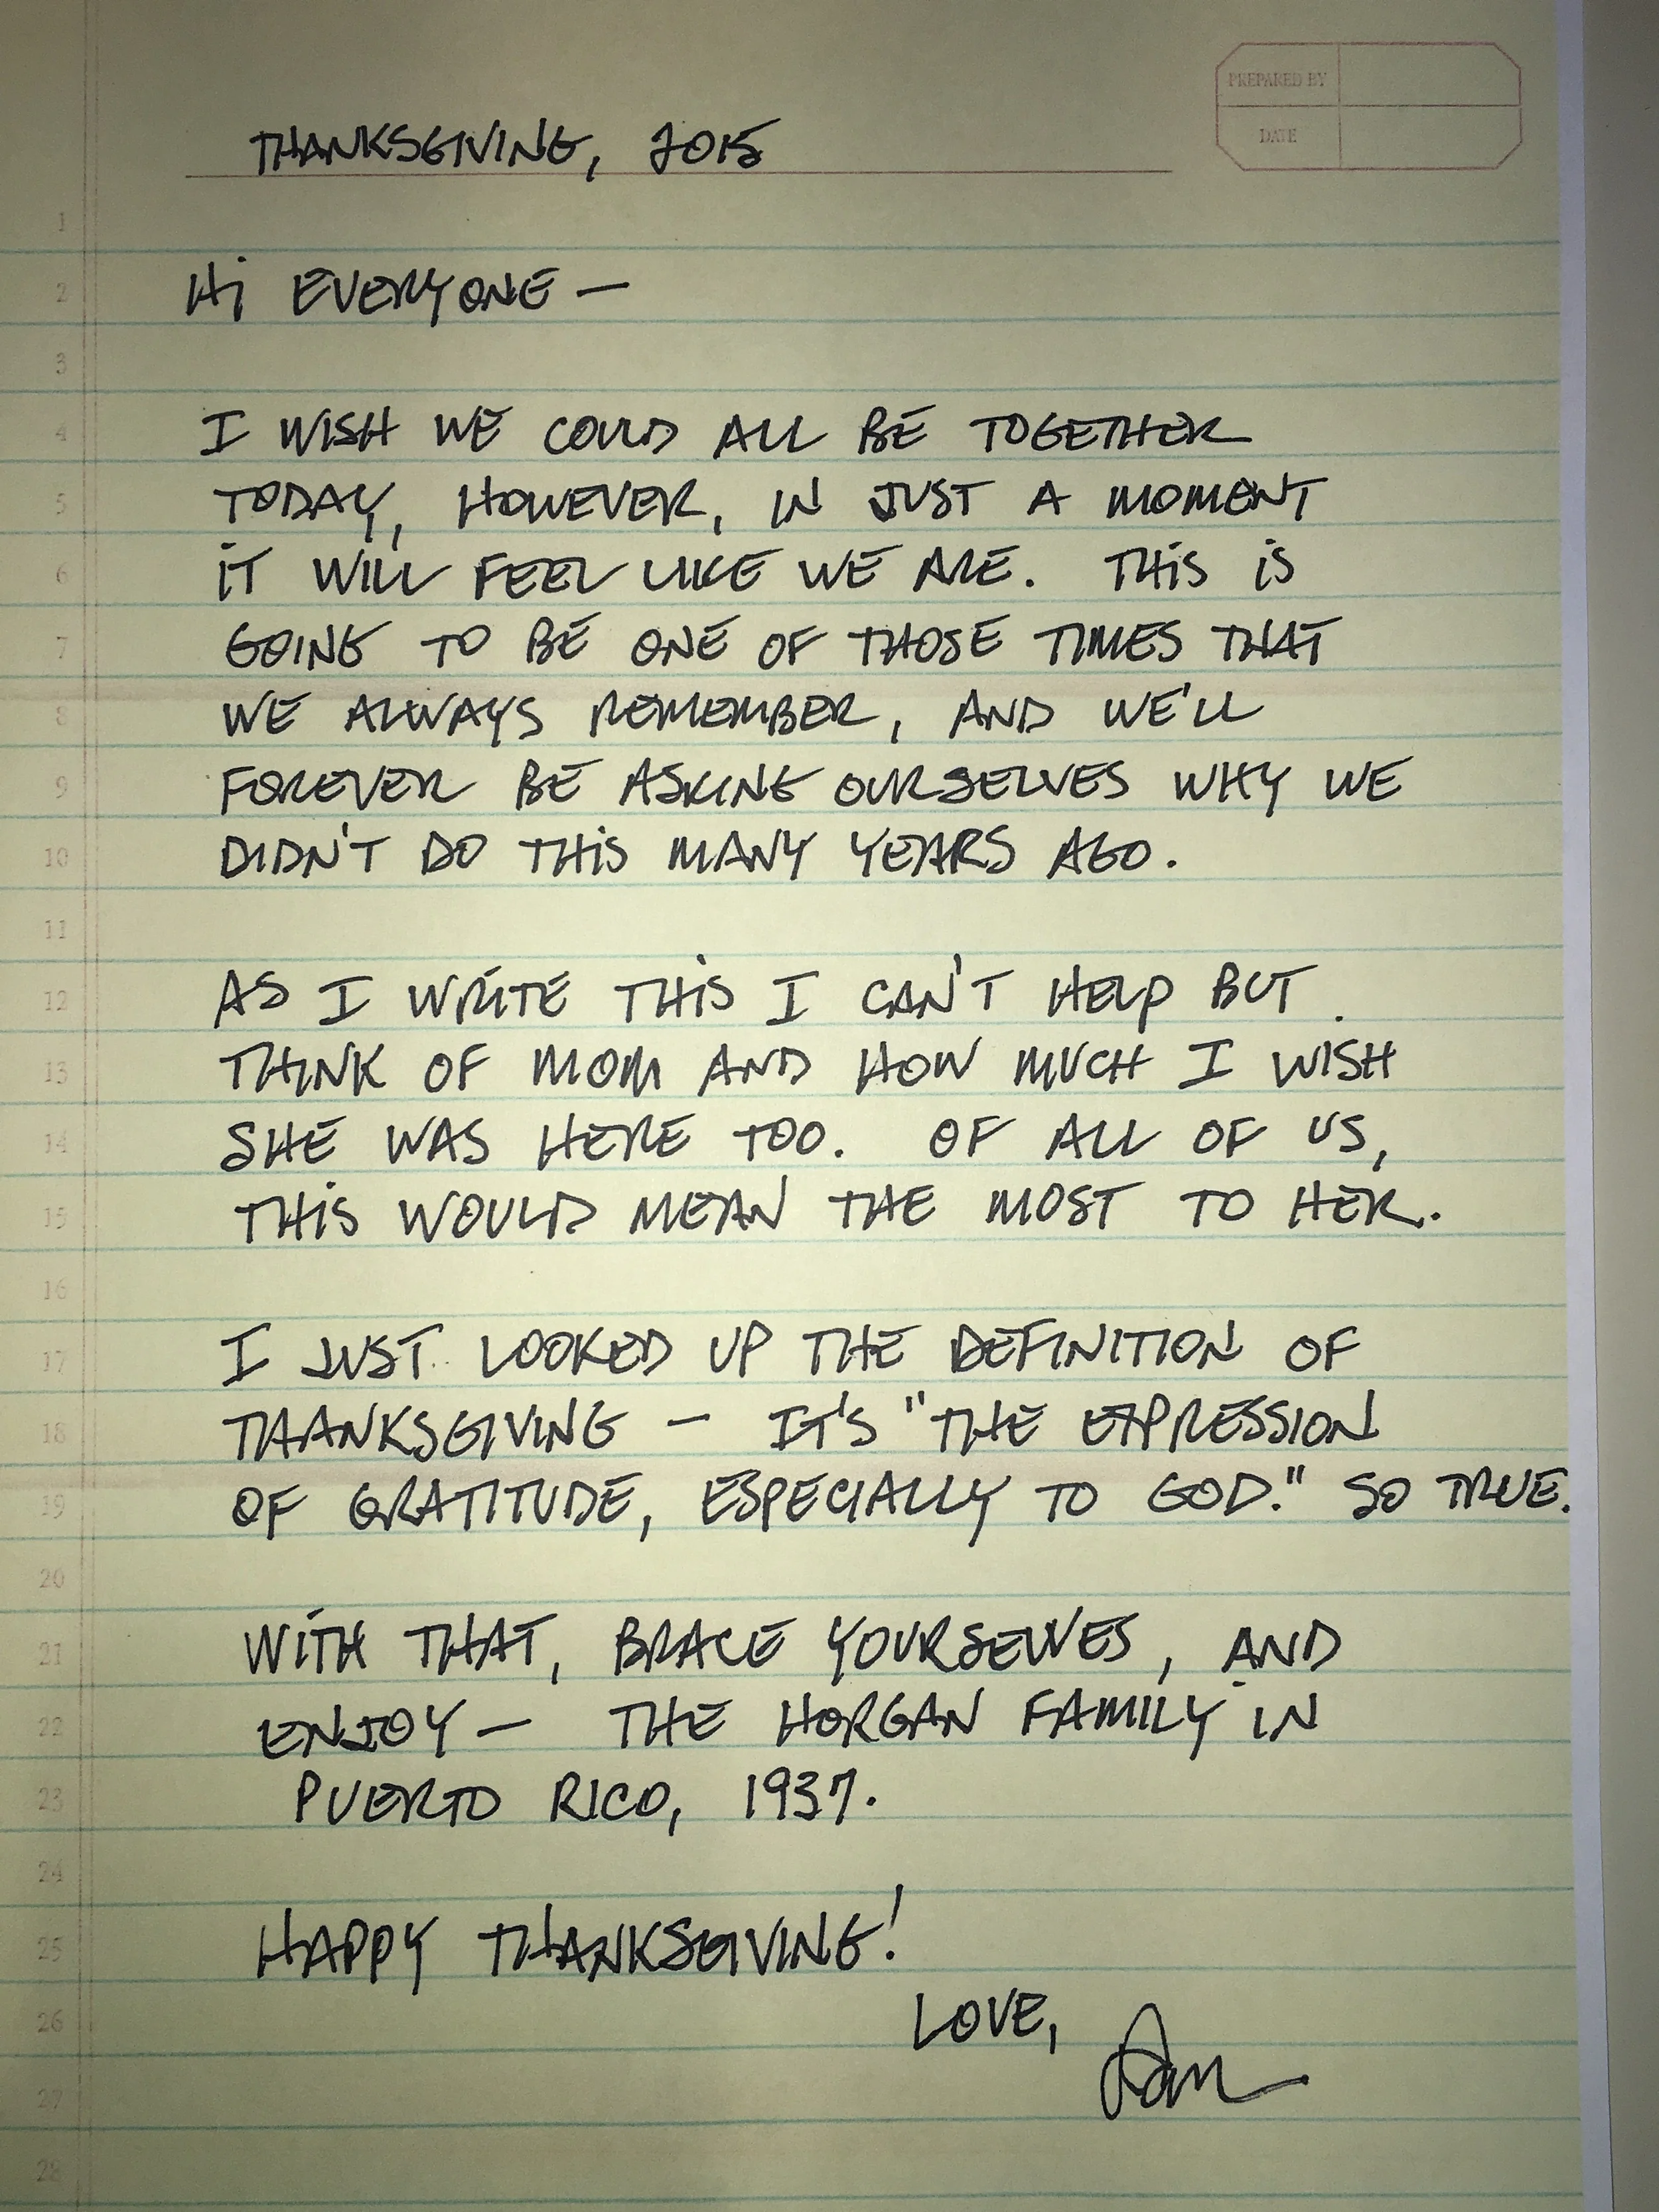 PREPARED BY
DATE
THANKSGIVING, 2015
1
2
Hi EVERYONE —
3
4
I WISH WE COULD ALL BE TOGETHER
5
TODAY, HOWEVER, IN JUST A MOMENT
6
iT WILL FEEL LIKE WE ARE. THiS iS
7
GOING TO BE ONE OF THOSE TIMES THAT
8
WE ALWAYS REMEMBER, AND WE'LL
9
FOREVER BE ASKING OURSELVES WHY WE
10
DIDN'T DO THiS MANY YEARS AGO.
11
12
AS I WRITE THiS I CAN'T HELP BUT
13
THINK OF MOM AND HOW MUCH I WISH
14
SHE WAS HERE TOO. OF ALL OF US,
15
THiS WOULD MEAN THE MOST TO HER.
16
17
I JUST LOOKED UP THE DEFINITION OF
18
THANKSGIVING — IT'S "THE EXPRESSION
19
OF GRATITUDE, ESPECIALLY TO GOD." SO TRUE.
20
21
WITH THAT, BRACE YOURSELVES, AND
22
ENJOY — THE HORGAN FAMILY IN
23
PUERTO RICO, 1937.
24
25
HAPPY THANKSGIVING!
26
LOVE,
27
28